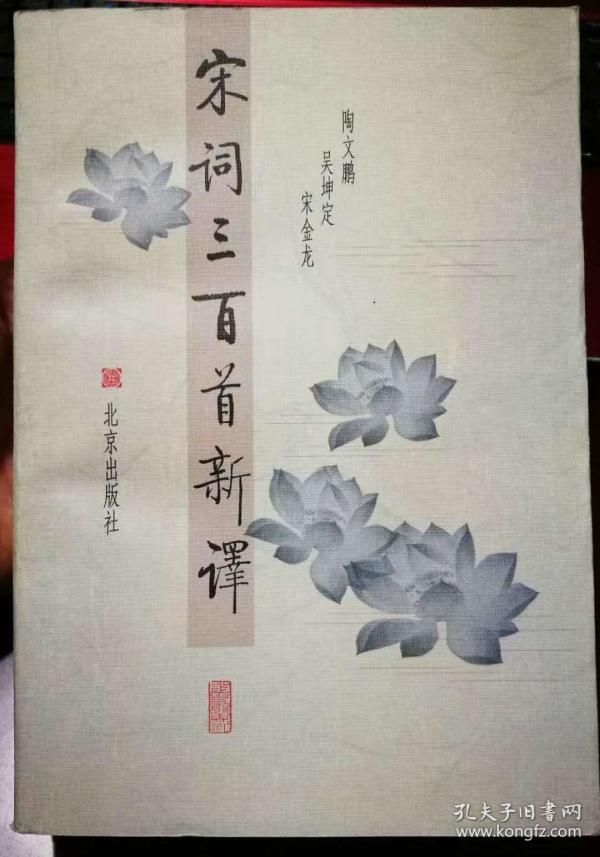 宋词三百首新譯
陶文鹏
吴坤定
宋金龙
北京出版社
孔夫子旧書网
www.kongfz.com